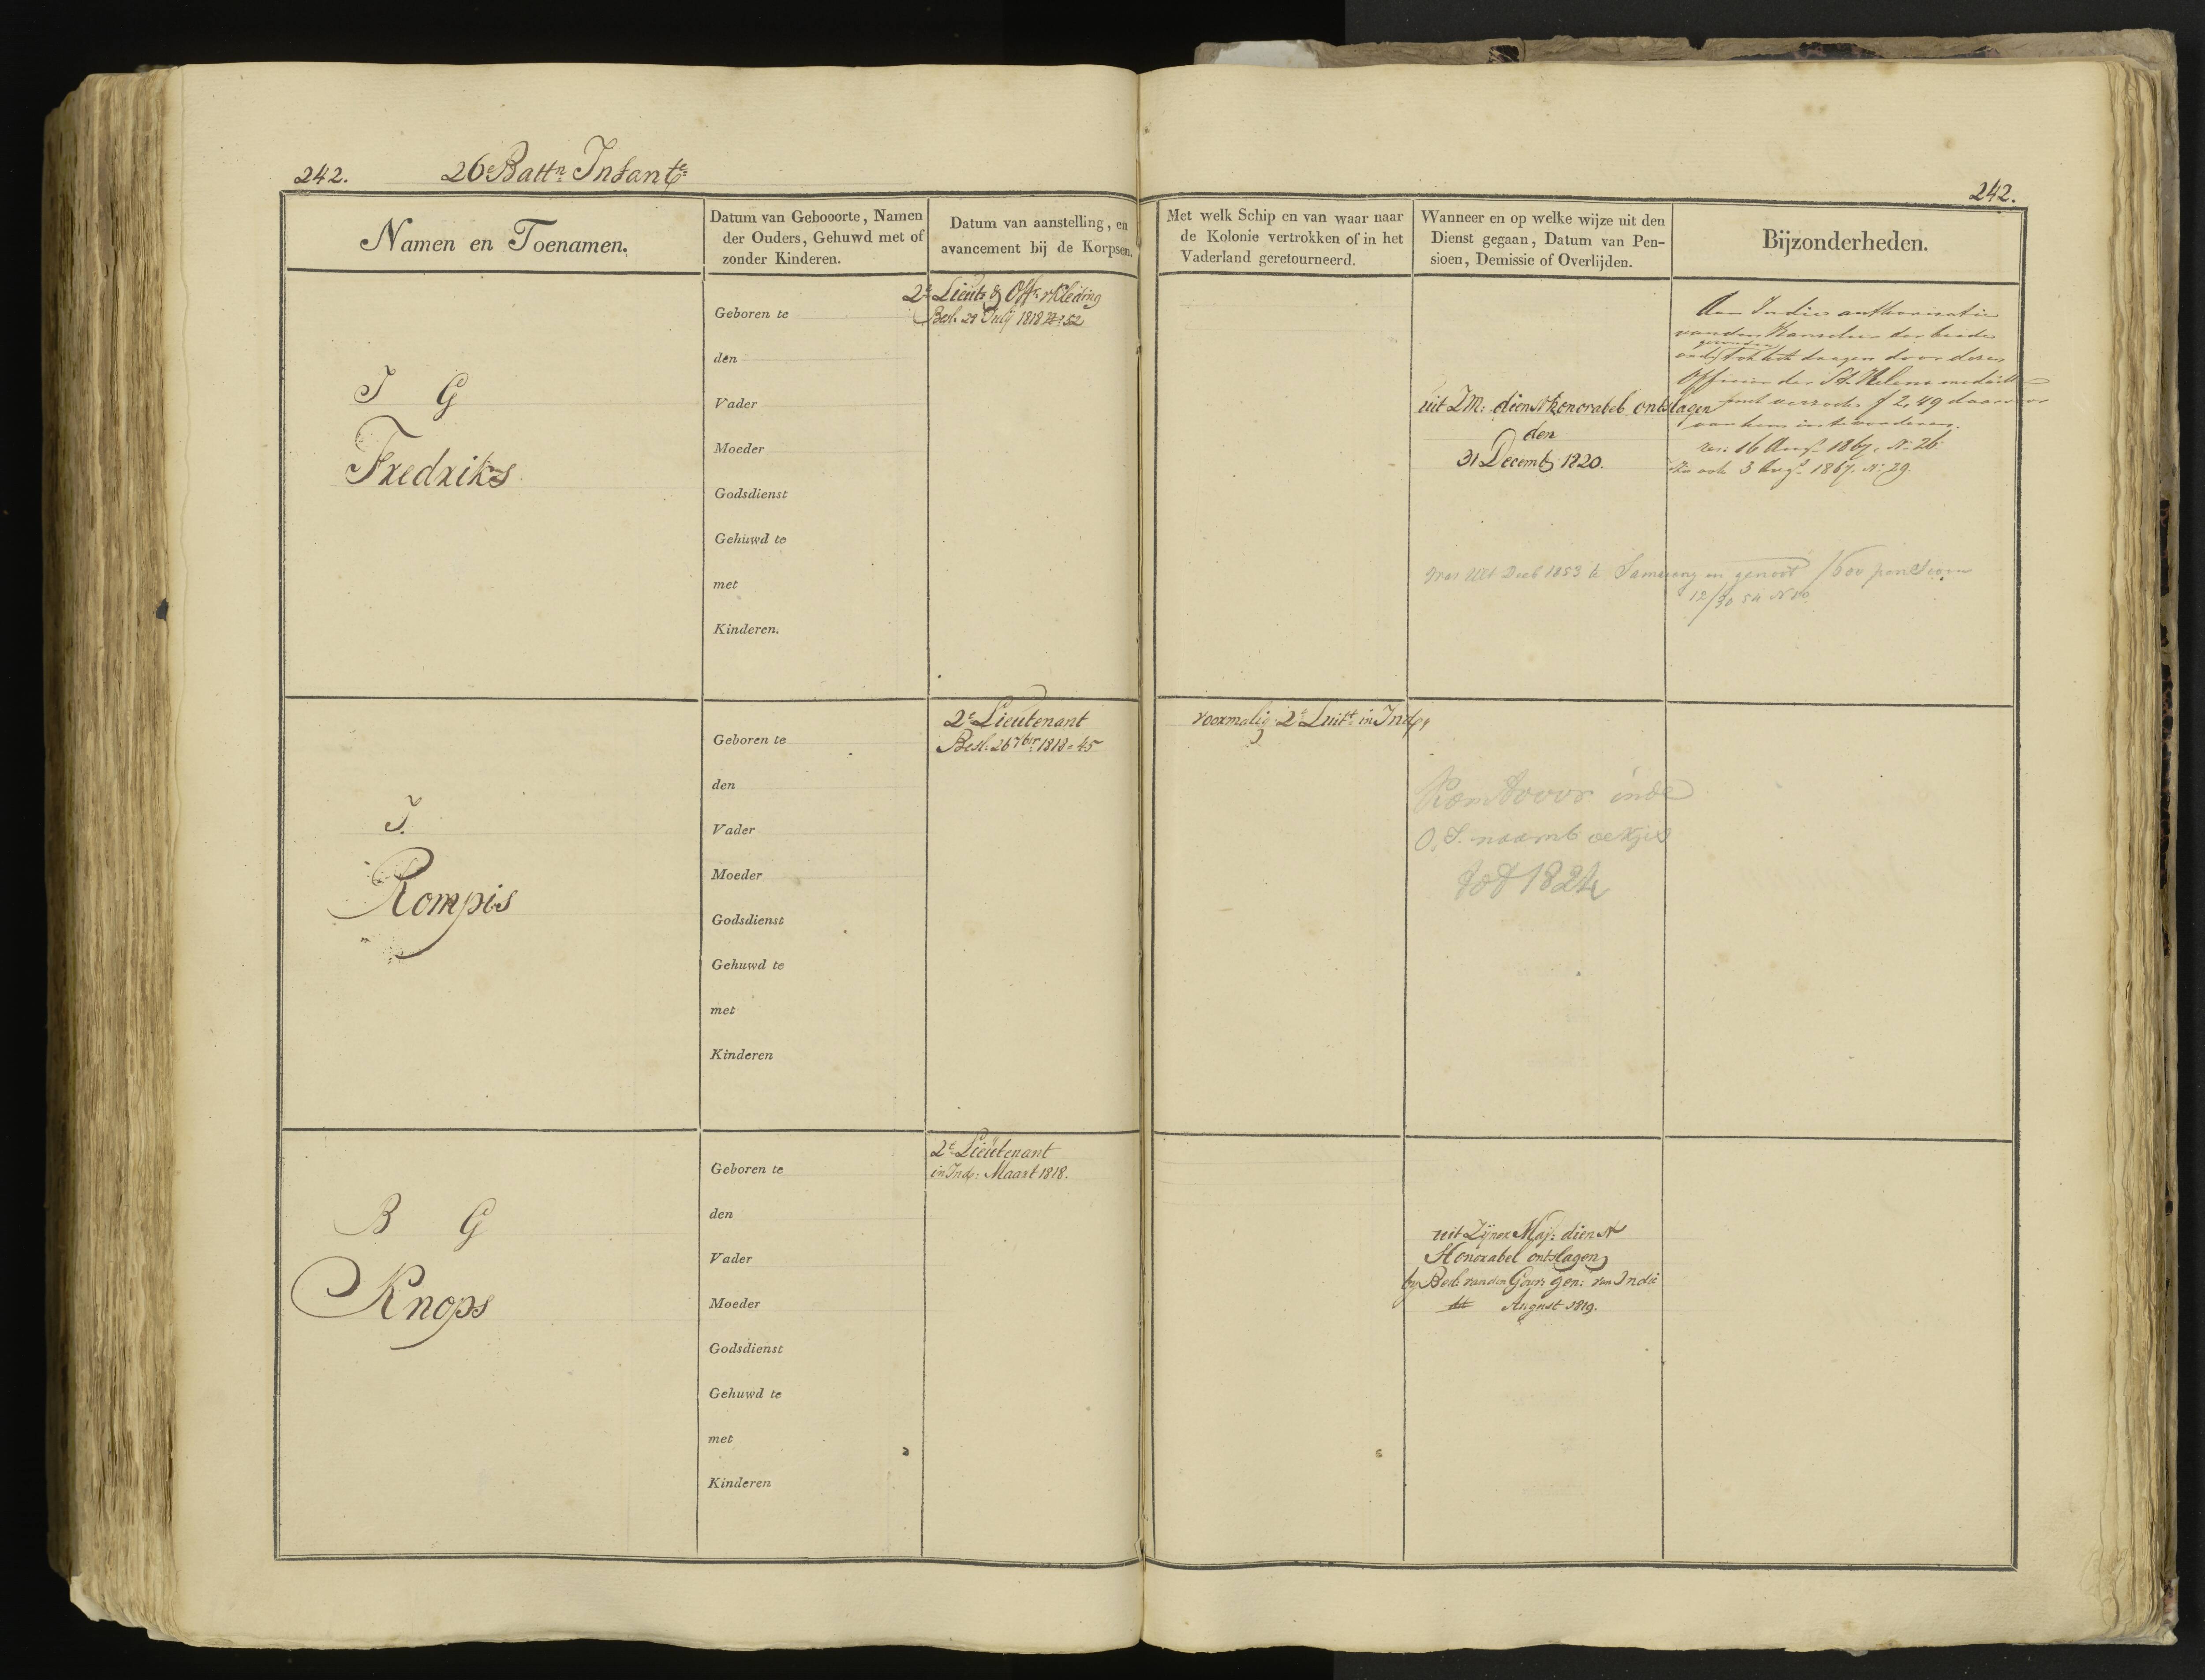 242. 26e Battn Infante
242.
Namen en Toenamen.
Datum van Gebooorte, Namen
der Ouders, Gehuwd met of
zonder Kinderen.
Datum van aanstelling, en
avancement bij de Korpsen.
Met welk Schip en van waar naar
de Kolonie vertrokken of in het
Vaderland geretourneerd.
Wanneer en op welke wijze uit den
Dienst gegaan, Datum van Pen-
sioen, Demissie of Overlijden.
Bijzonderheden.
J G
Fredriks
Geboren te
den
Vader
Moeder
Godsdienst
Gehuwd te
met
Kinderen.
2e Lieut: & Offr v Kleding
Besl. 29 Julij 1818 No 52
uit ZM: dienst honorabel ontslagen
den
31 Decemb 1820.
Aan Indie authorisatie
van den Kanselier der beide
gezonden
tot het dragen door dezen
Officier der St. Helena medaille
met verzoek f 2,49 daarvoor
van hem in te vorderen.
res: 16 Augt 1867, No 26
Zie ook 3 Augt 1867, No 29.
was Ult Decb 1853 te Samarang en genoot f 600 pensioen
12/30 54
J.
Rompis
Geboren te
den
Vader
Moeder
Godsdienst
Gehuwd te
met
Kinderen
2e Lieutenant
Besl. 26 7br 1818 = 45
voormalig 2e Luitt in Ind
Komt voor in de
O.I. naamboekjes
tot 1824
B G
Knops
Geboren te
den
Vader
Moeder
Godsdienst
Gehuwd te
met
Kinderen
2e Lieutenant
in Ind: Maart 1818.
uit Zijner Maj: dienst
Honorabel ontslagen
by Besl: van den Gouv: gen: van Indie
August 1819.